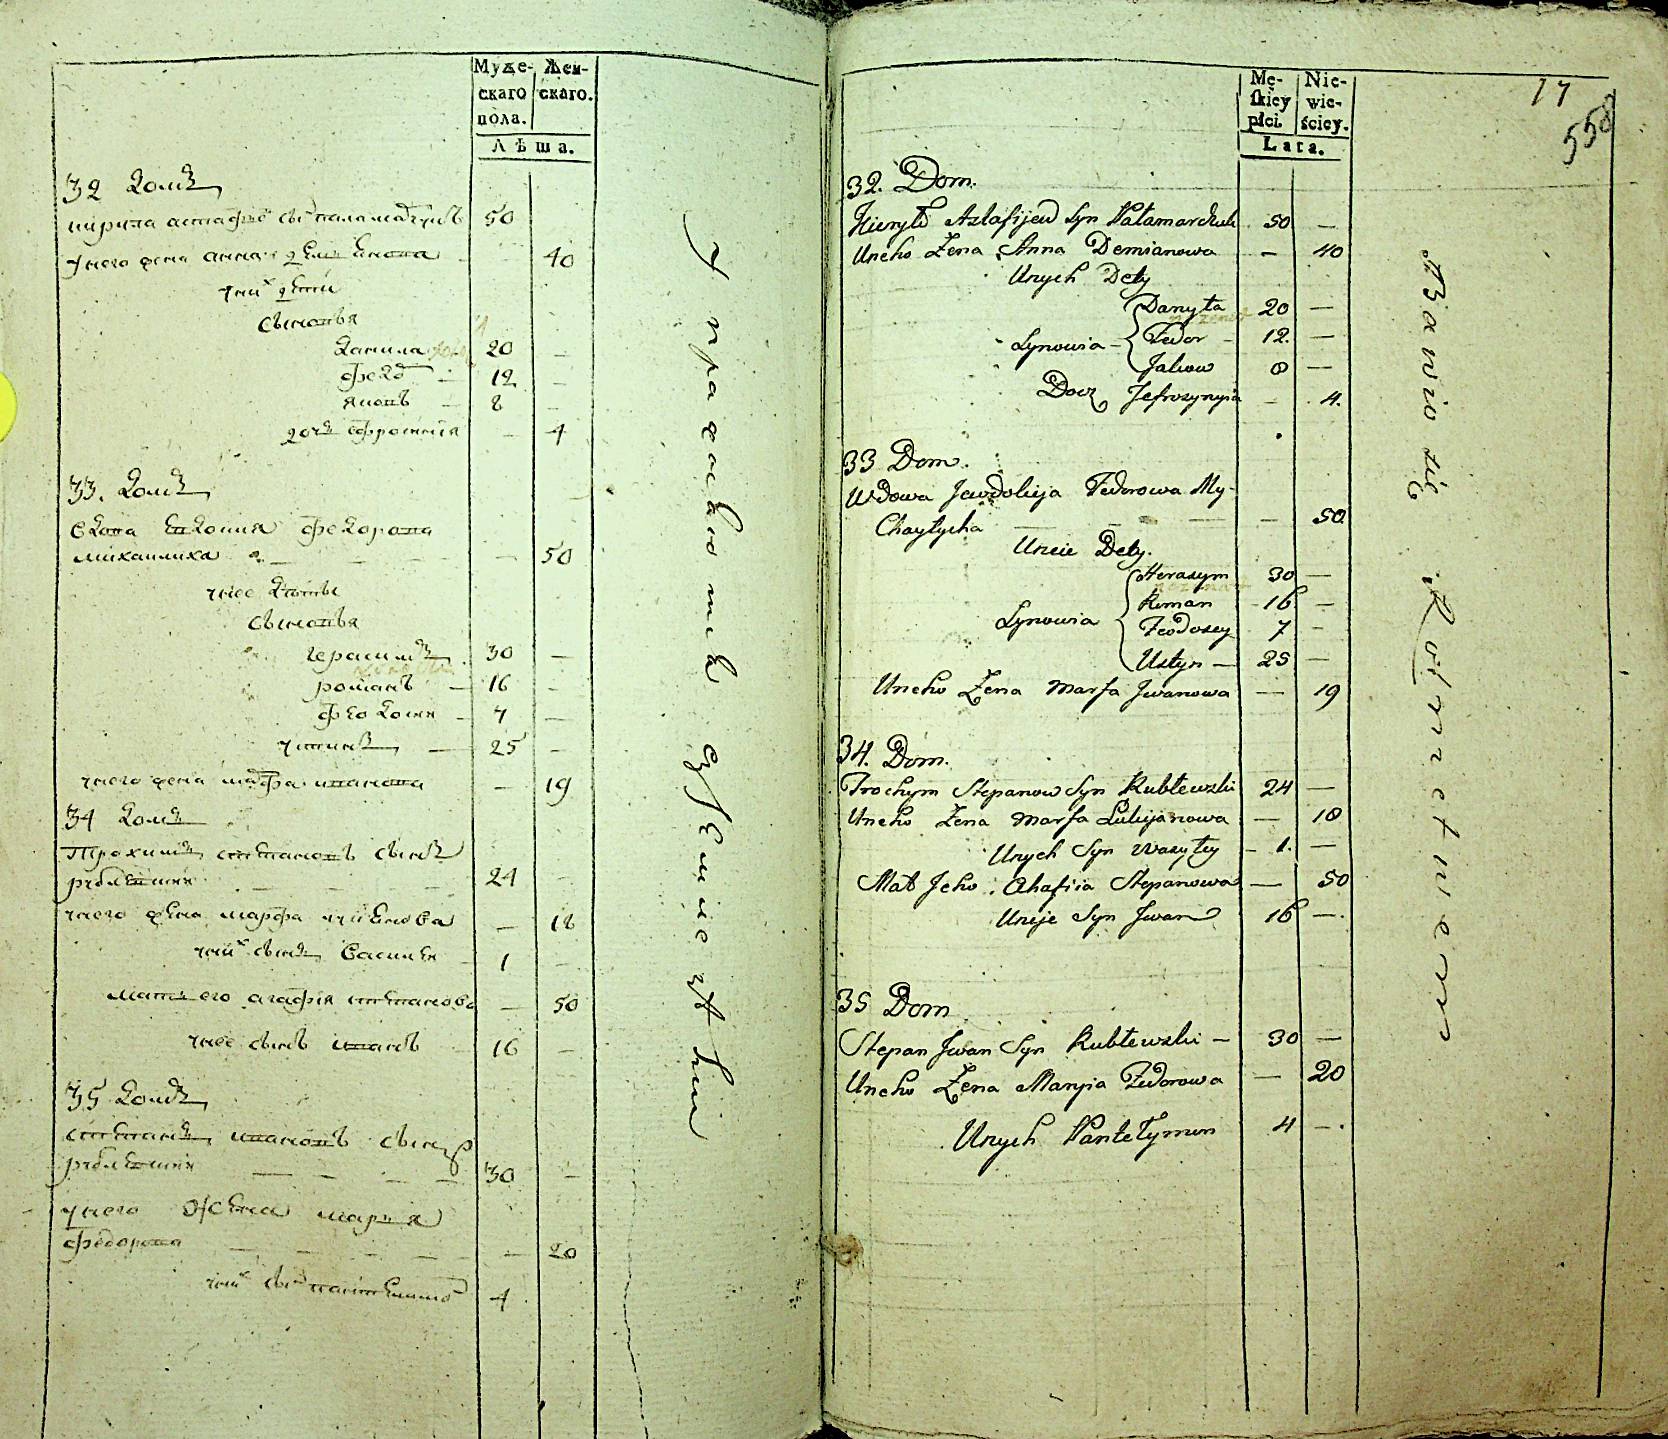 Муже-
скаго
пола.
Жен-
скаго.
Лѣта.
32 домъ
кирила астафіе сы паламарчукъ 50
унего жена анна демянова — 40
уних дети
сыновья
данила 20 —
федо 12 —
яковъ 8 —
дочь ефросинія — 4
33. домъ
вдова евдокия федорова
михаилиха — 50
унее дѣти
сыновья
герасимъ 30 —
романъ 16 —
феодосий 7 —
устинъ 25 —
унего жена марфа иванова — 19
34 домъ
трохимъ степановъ сынъ
рублевский 24 —
унего жена марфа лукіянова — 18
уних сынъ василий 1 —
мать его агафія степанова — 50
унее сынъ иванъ 16 —
35 домъ
степанъ ивановъ сынъ
рублевский 30 —
унего жена мария
федорова — 20
уних сы пантелимо 4
Упражняются в земледѣлии
17
558
Mę-
skiey
płci.
Nie-
wie-
ściey.
Lata.
32. Dom.
Kieryło Astafijew Syn Pałamarchuk 50 —
Uneho Żena Anna Demianowa — 40
Unych Dety
Danyła 20 —
Synowia — Fedor — 12. —
Jakow 8 —
Docz Jefrosynyia — 4.
33 Dom.
Wdowa Jewdokija Fedorowa My-
Chayłycha — 50
Uneie Dety.
Herasym 30 —
Roman 16 —
Synowia Feodosey 7 —
Ustyn — 25 —
Uneho Żena Marfa Jwanowa — 19
34. Dom.
Trochym Stepanow Syn Rublewski 24 —
Uneho Żena Marfa Lukijanowa — 18
Unych Syn Wasyley 1. —
Mat Jeho Ahafiia Stepanowa — 50
Uneje Syn Jwan 16 —
35 Dom
Stepan Jwan Syn Rublewski — 30 —
Uneho Żena Maryia Fedorowa — 20
Unych Pantełymon 4 —
Bawio się Rolnictwem